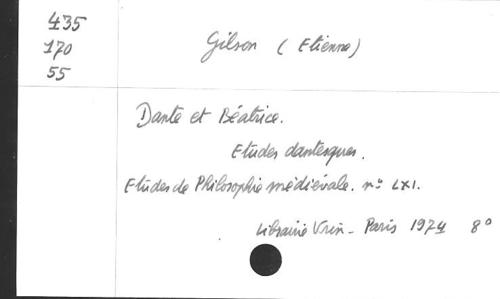 435
170
55
Gilson (Etienne)
Dante et Béatrice.
Etudes dantesques.
Etudes de Philosophie médiévale. nº LXI.
Librairie Vrin - Paris 1974 8º